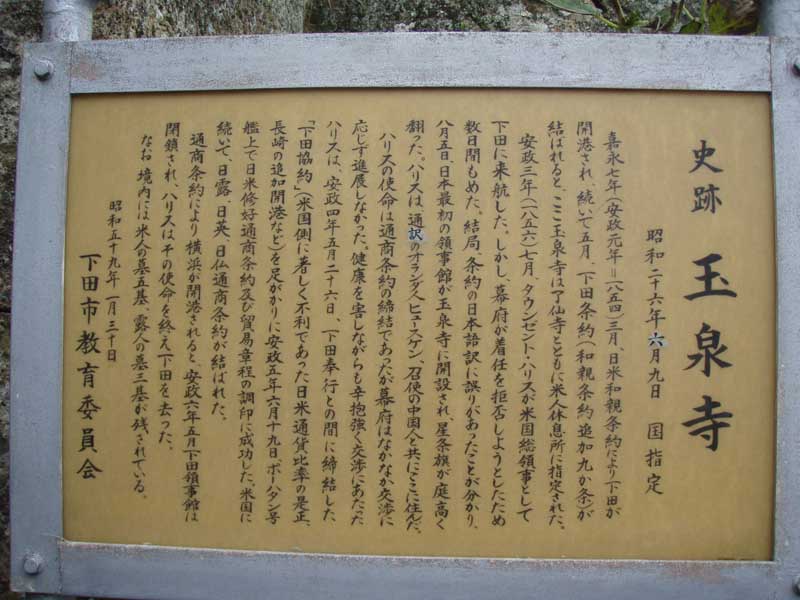 史跡 玉泉寺
昭和二十六年六月九日 国指定
嘉永七年(安政元年=一八五四)三月、日米和親条約により下田が
開港され、続いて五月、下田条約(和親条約追加九か条)が
結ばれると、ここ玉泉寺は了仙寺とともに米人休息所に指定された。
安政三年(一八五六)七月、タウンゼント・ハリスが米国総領事として
下田に来航した。しかし、幕府が着任を拒否しようとしたため
数日間もめた。結局、条約の日本語訳に誤りがあったことが分かり、
八月五日、日本最初の領事館が玉泉寺に開設され、星条旗が庭高く
翻った。ハリスは、通訳のオランダ人ヒュースケン、召使の中国人と共にここに住んだ。
ハリスの使命は通商条約の締結であったが幕府はなかなか交渉に
応じず進展しなかった。健康を害しながらも辛抱強く交渉にあたった
ハリスは、安政四年五月二十六日、下田奉行との間に締結した、
「下田協約」(米国側に著しく不利であった日米通貨比率の是正、
長崎の追加開港など)を足がかりに安政五年六月十九日ポーハタン号
艦上で日米修好通商条約及び貿易章程の調印に成功した。米国に
続いて、日露、日英、日仏通商条約が結ばれた。
通商条約により横浜が開港されると、安政六年五月下田領事館は
閉鎖され、ハリスはその使命を終え下田を去った。
なお境内には米人の墓五基、露人の墓三基が残されている。
昭和五十九年一月三十日
下田市教育委員会